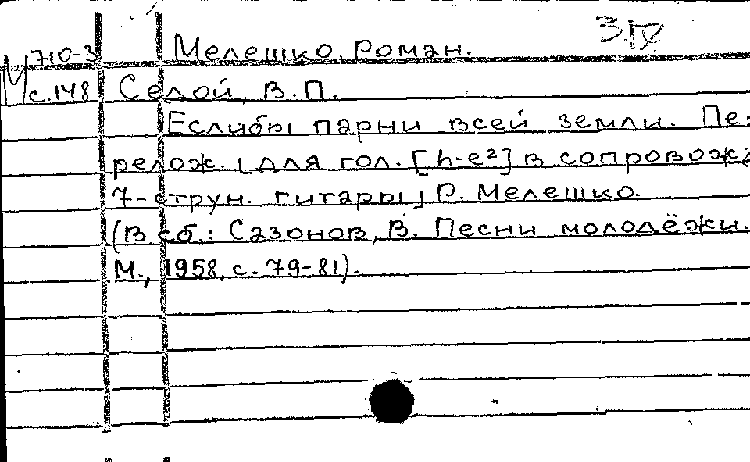 3 IV
М 710-3 Мелешко, Роман.
с.148 Седой, В.П.
Еслибы парни всей земли. Пе-
релож. [для гол. [h-e²] в сопровожд.
7-струн. гитары] Р. Мелешко.
(В сб.: Сазонов, В. Песни молодёжи.
М., 1958, с. 79-81).